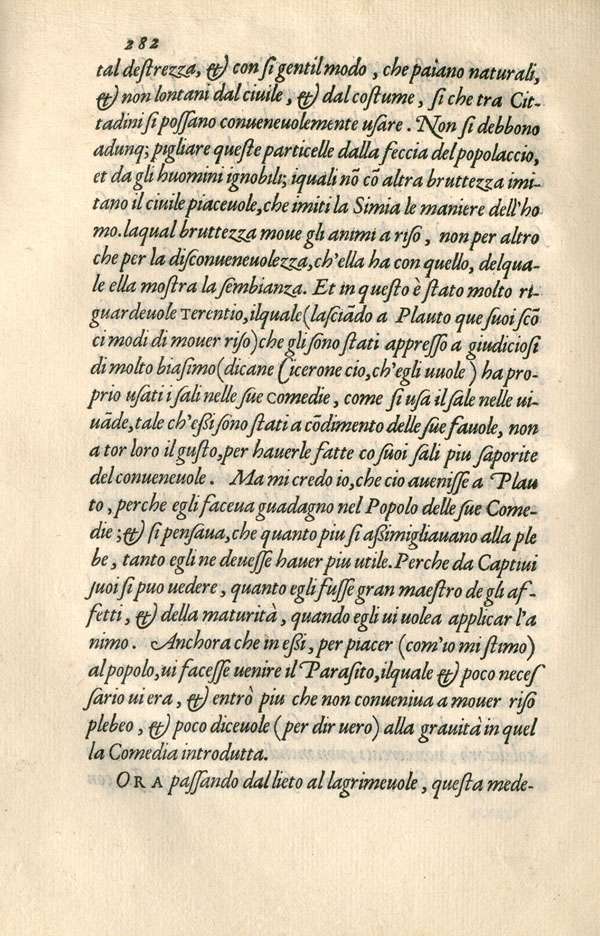 282
tal destrezza, & con si gentil modo, che paiano naturali,
& non lontani dal ciuile, & dal costume, si che tra Cit-
tadini si possano conueneuolemente usare. Non si debbono
adunq; pigliare queste particelle dalla feccia del popolaccio,
et da gli huomini ignobili; iquali nõ cõ altra bruttezza imi-
tano il ciuile piaceuole, che imiti la Simia le maniere dell'ho
mo. laqual bruttezza moue gli animi a riso, non per altro
che per la disconueneuolezza, ch'ella ha con quello, delqua-
le ella mostra la sembianza. Et in questo è stato molto ri-
guardeuole Terentio, ilquale (lasciãdo a Plauto que suoi scõ
ci modi di mouer riso) che gli sono stati appresso a giudiciosi
di molto biasimo (dicane Cicerone cio, ch'egli uuole) ha pro-
prio usati i sali nelle sue comedie, come si usa il sale nelle ui-
uãde, tale ch'essi sono stati a cõdimento delle sue fauole, non
a tor loro il gusto, per hauerle fatte co suoi sali piu saporite
del conueneuole. Ma mi credo io, che cio auenisse a Plau
to, perche egli faceua guadagno nel Popolo delle sue Come-
die; & si pensaua, che quanto piu si assimigliauano alla ple
be, tanto egli ne deuesse hauer piu utile. Perche da Captiui
suoi si puo uedere, quanto egli fusse gran maestro de gli af-
fetti, & della maturità, quando egli ui uolea applicar l'a
nimo. Anchora che in essi, per piacer (com'io mi stimo)
al popolo, ui facesse uenire il Parasito, ilquale & poco neces
sario ui era, & entrò piu che non conueniua a mouer riso
plebeo, & poco diceuole (per dir uero) alla grauità in quel
la Comedia introdutta.
ORA passando dal lieto al lagrimeuole, questa mede-